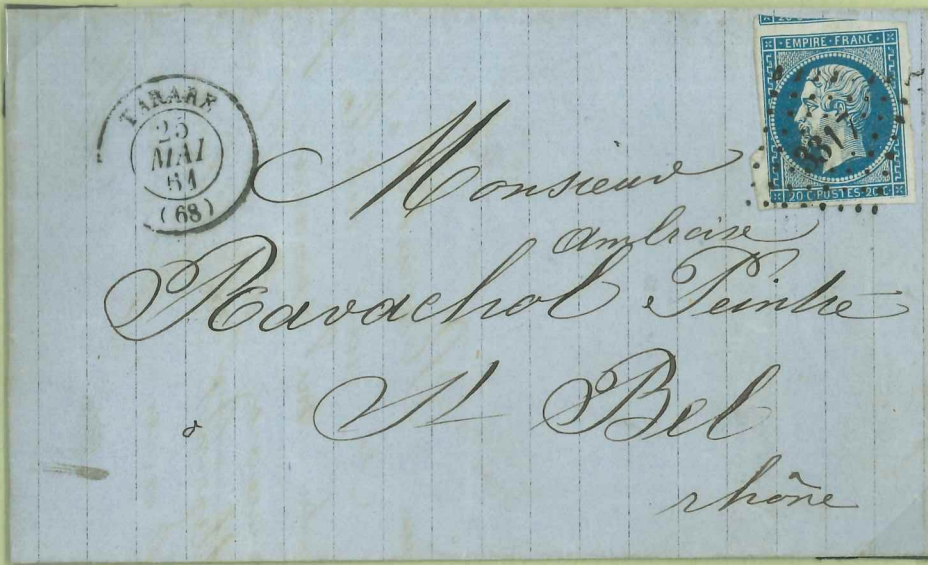 TARARE
25
MAI
61
(68)
EMPIRE FRANC
20 C POSTES 20 C
Monsieur
Ambroise
Ravachol Peintre
à St Bel
rhône